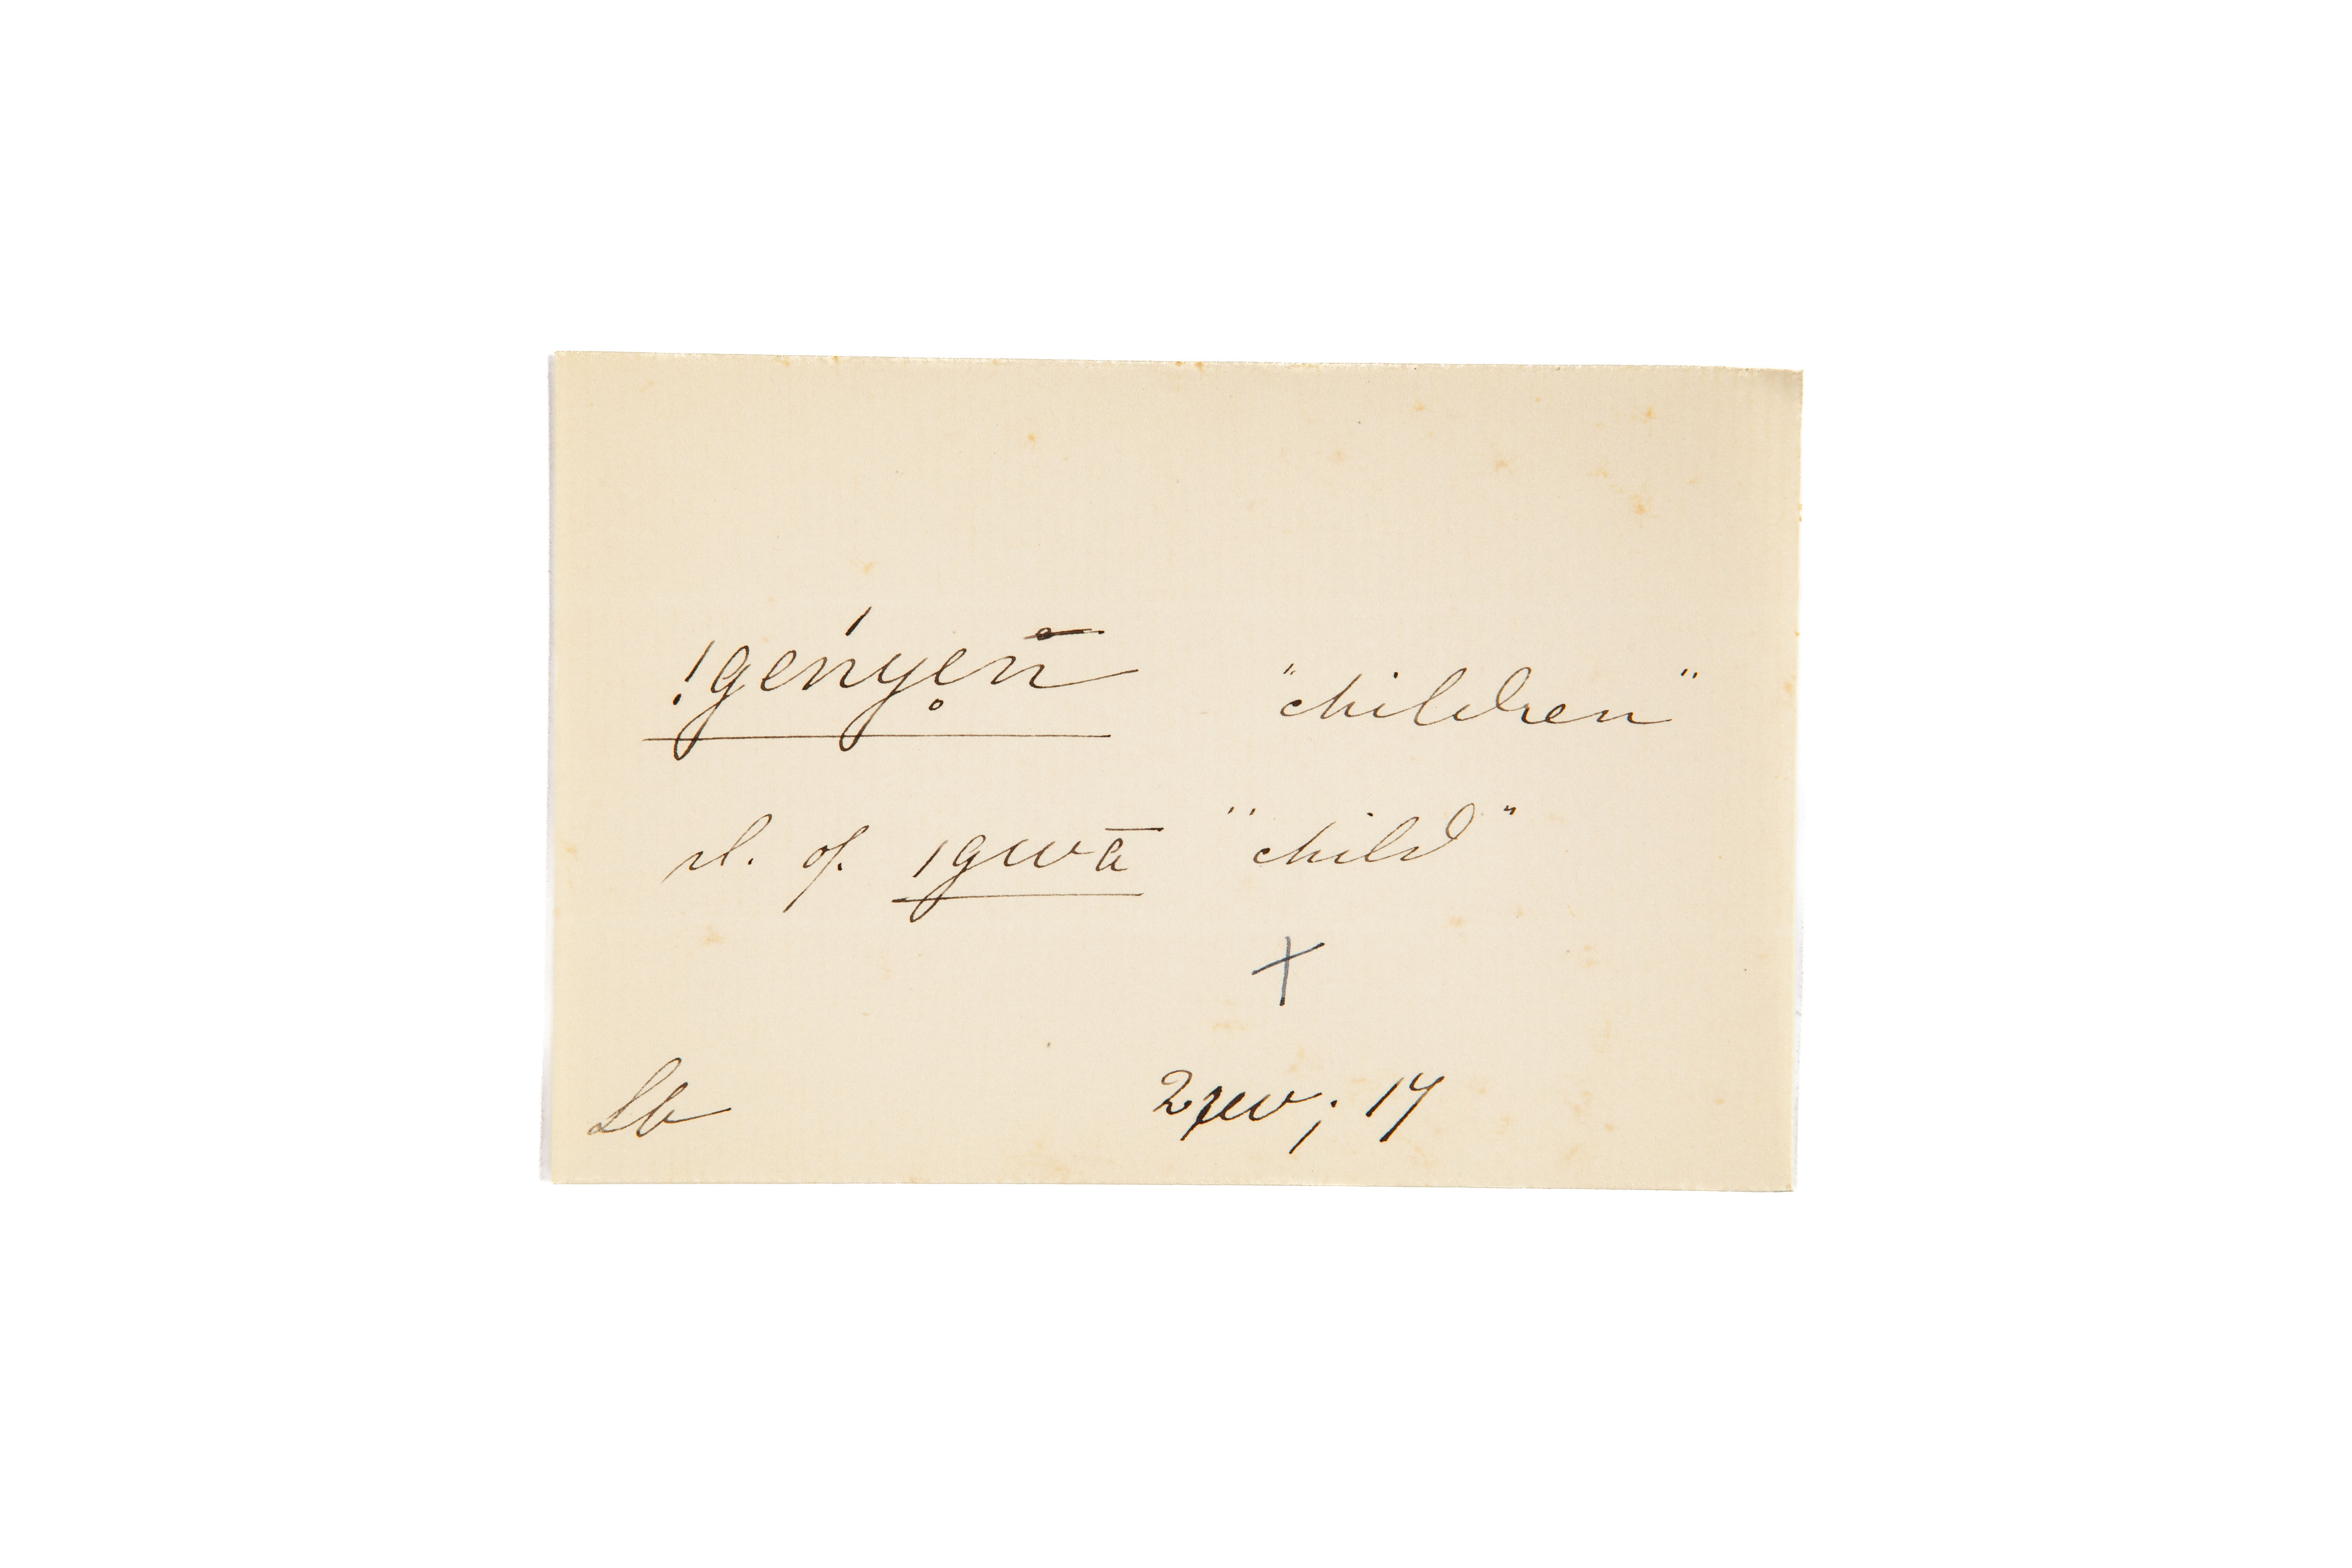 !génye̥n̄ "children"
pl. of. ǀgwā "child"
X
Lb 2 rev; 17